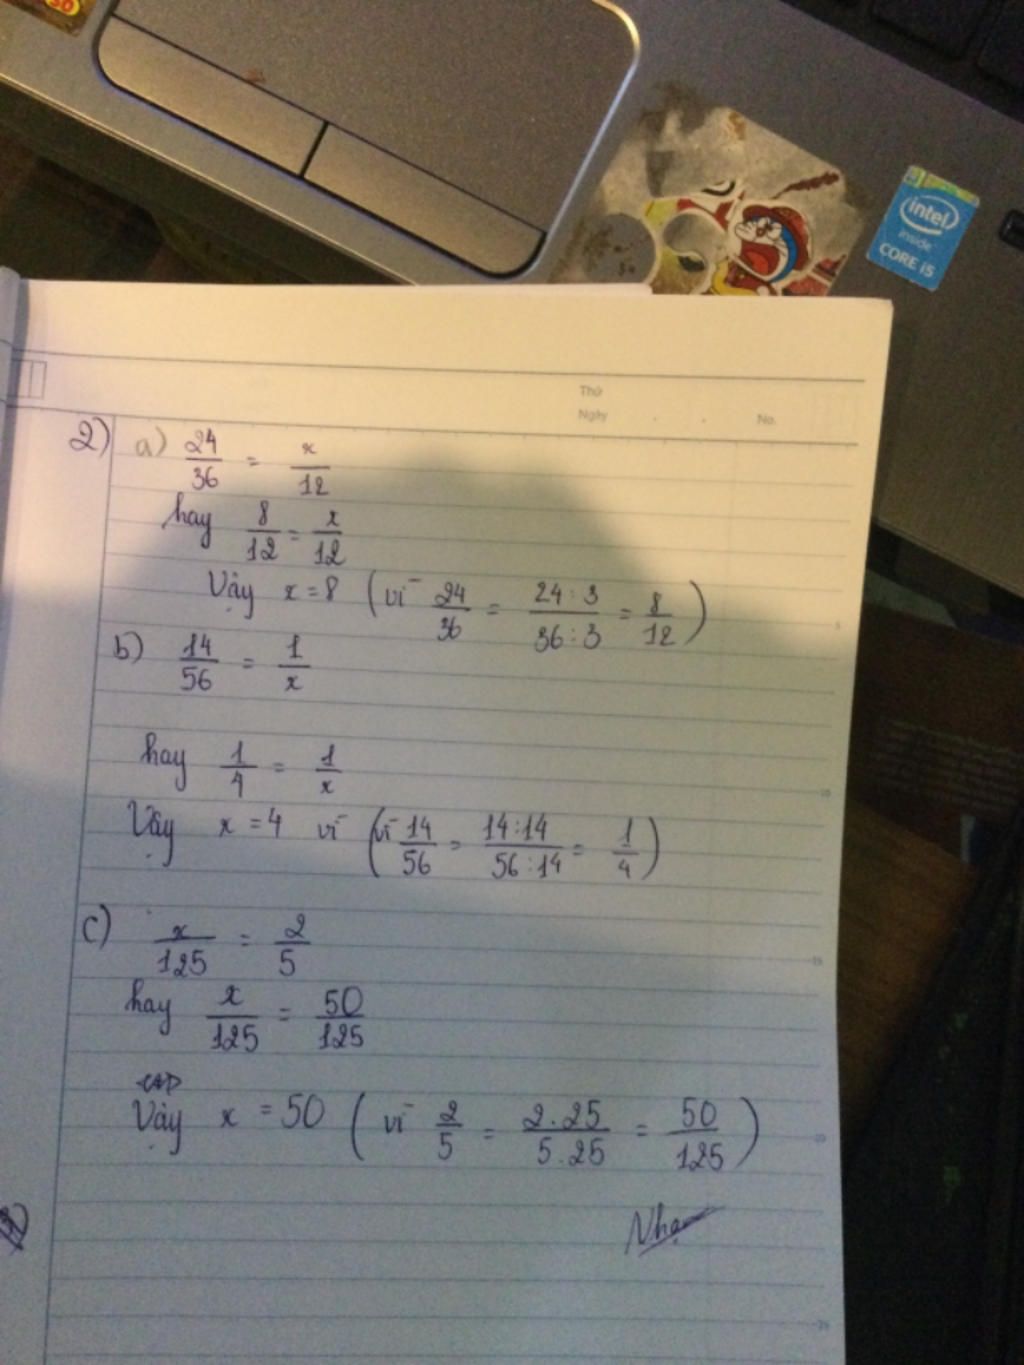 50
intel
inside
CORE i5
Thứ
Ngày . . No.
2) a) 24/36 = x/12
hay 8/12 = x/12
Vậy x = 8 (vì 24/36 = 24 : 3/36 : 3 = 8/12)
b) 14/56 = 1/x
hay 1/4 = 1/x
Vậy x = 4 vì (vì 14/56 = 14 : 14/56 : 14 = 1/4)
c) x/125 = 2/5
hay x/125 = 50/125
Vậy x = 50 (vì 2/5 = 2 . 25/5 . 25 = 50/125)